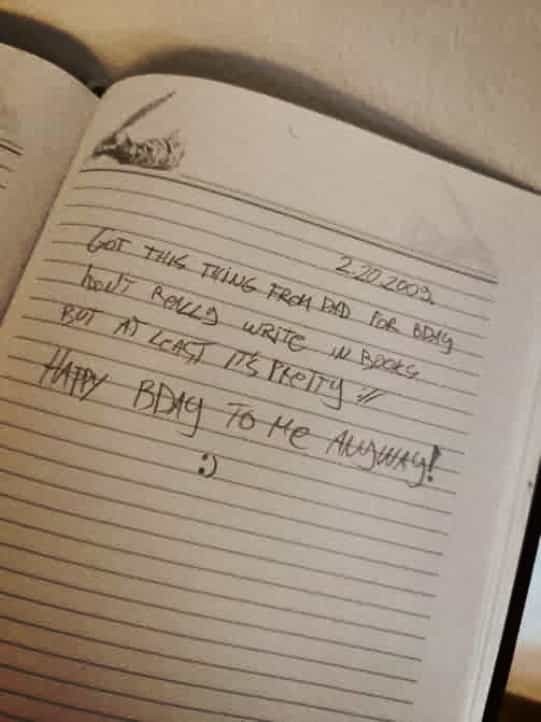 2.20.2009.
GOT THIS THING FROM DAD FOR BDAY
DON'T REALLY WRITE IN BOOKS
BUT AT LEAST IT'S PRETTY
HAPPY BDAY TO ME ANYWAY!
:)